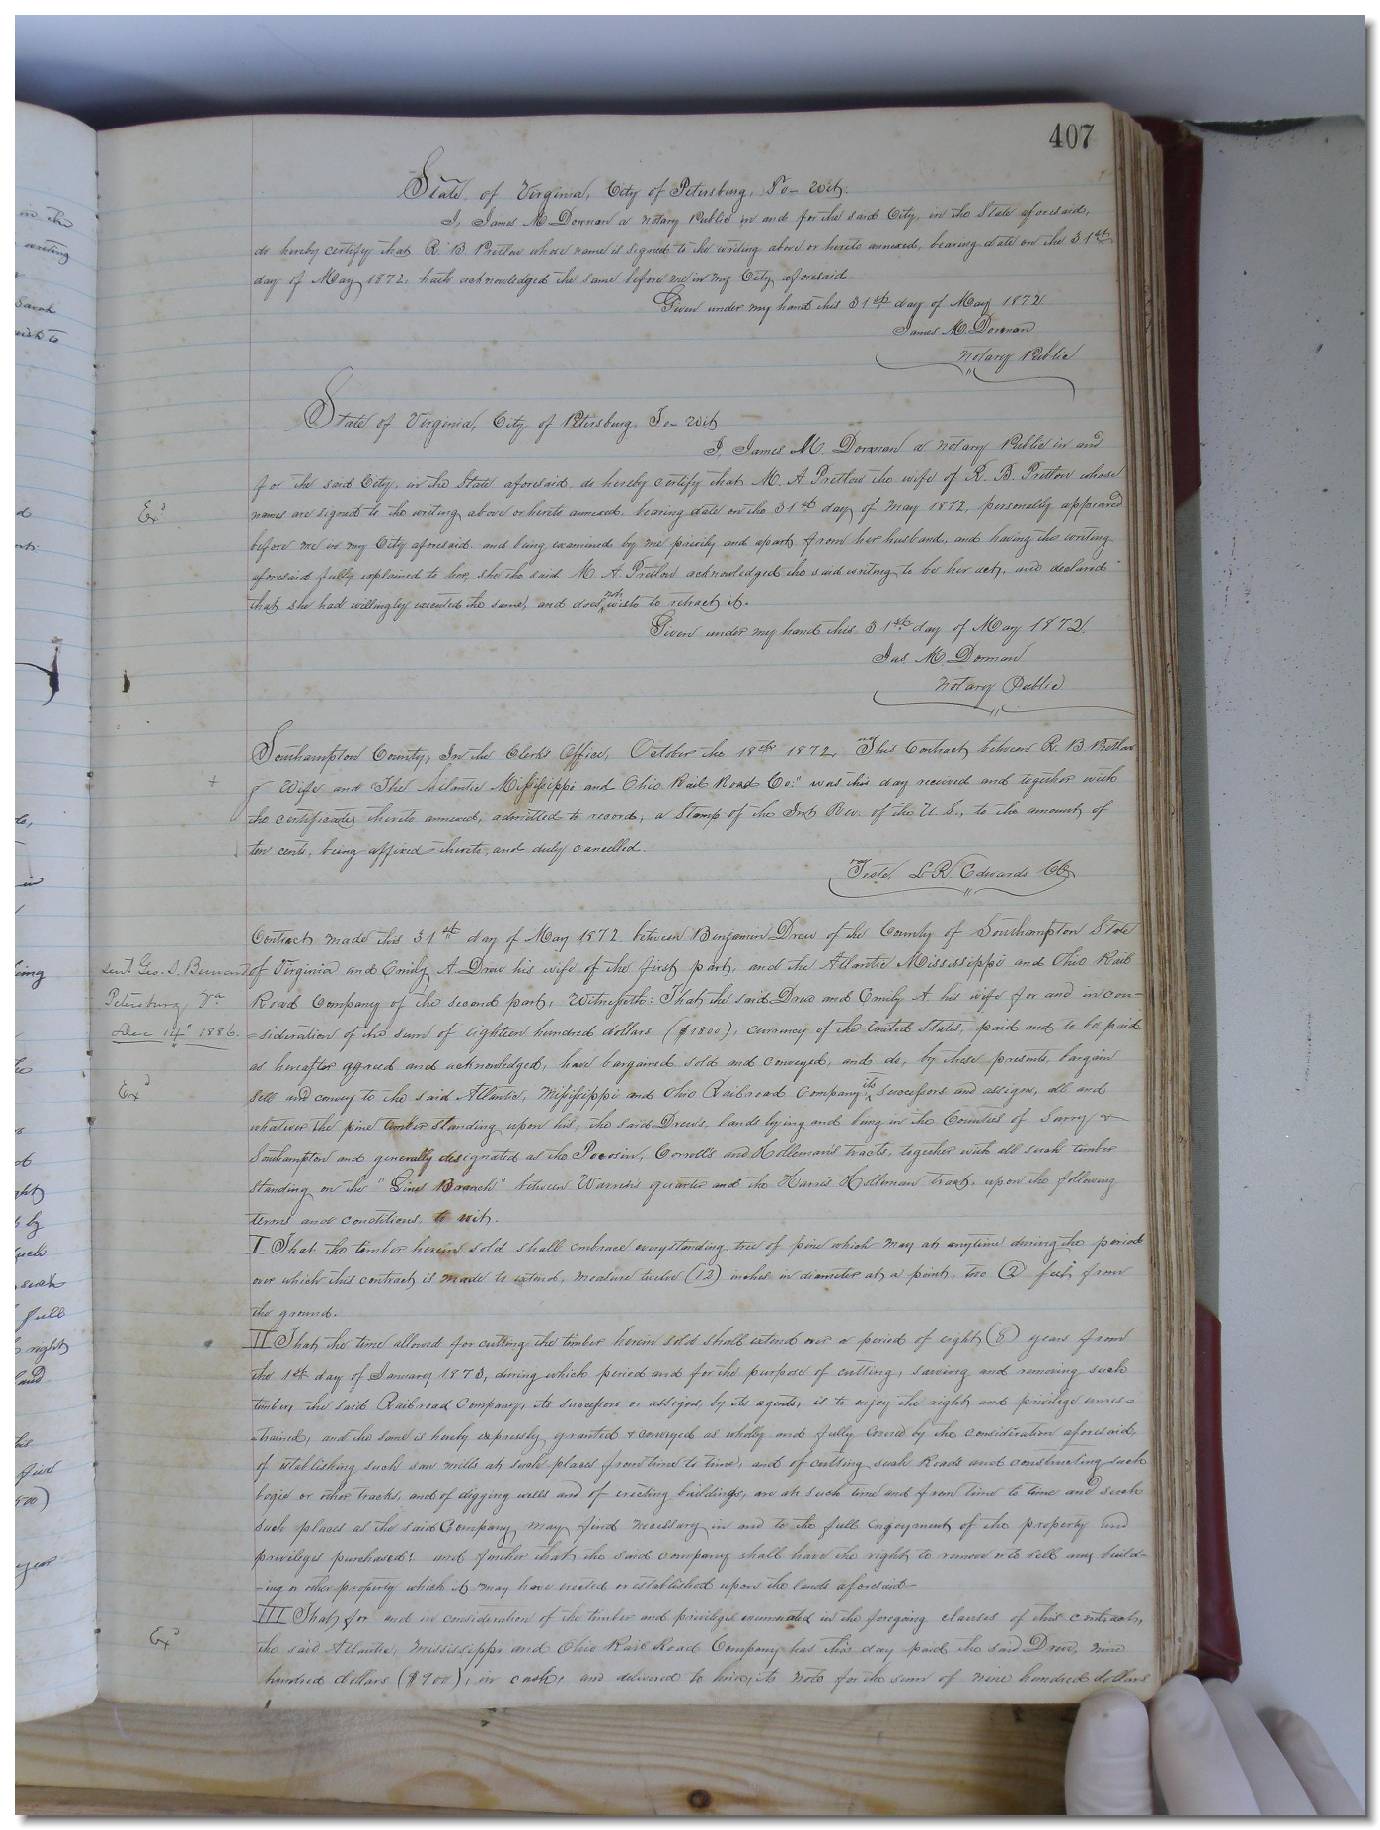 407
State of Virginia, City of Petersburg, To- Wit:
I, James M Dorman a Notary Public in and for the said City, in the State aforesaid,
do hereby certify that R. B. Pretlow whose name is signed to the writing above or hereto annexed, bearing date on the 31st
day of May 1872, hath acknowledged the same before me in my City aforesaid
Given under my hand this 31st day of May 1872
James M. Dorman
Notary Public
State of Virginia, City of Petersburg, To- wit
I, James M. Dorman a Notary Public in and
for the said City, in the State aforesaid, do hereby certify that M. A Pretlow the wife of R. B. Pretlow whose
Exd
names are signed to the writing above or hereto annexed, bearing date on the 31st day of May 1872, personally appeared
before me in my City aforesaid and being examined by me privily and apart from her husband, and having the writing
aforesaid fully explained to her, she the said M. A. Pretlow acknowledged the said writing to be her act, and declared
that she had willingly executed the same, and does not wish to retract it.
Given under my hand this 31st day of May 1872.
Jas. M. Dorman
Notary Public
Southampton County, In the Clerk's Office, October the 18th 1872, This Contract between R. B. Pretlow
& Wife and "The Atlantic Mississippi and Ohio Rail Road Co." was this day received and together with
the certificates thereto annexed, admitted to record, a Stamp of the Int Rev. of the U. S., to the amount of
ten cents, being affixed thereto, and duly cancelled.
Teste, L. R. Edwards CC
Contract made this 31st day of May 1872 between Benjamin Drew of the County of Southampton State
Sent Geo. S. Bernard
of Virginia and Emily A. Drew his wife of the first part, and the Atlantic Mississippi and Ohio Rail
Petersburg Va
Road Company of the second part, Witnesseth: That the said Drew and Emily A his wife for and in con-
Dec 14th 1886.
=sideration of the sum of eighteen hundred dollars ($1800), currency of the United States, paid and to be paid
as hereafter agreed and acknowledged, have bargained sold and conveyed, and do, by these presents, bargain
Exd
sell and convey to the said Atlantic, Mississippi and Ohio Railroad Company its successors and assigns, all and
whatever the pine timber standing upon his, the said Drew's, lands lying and being in the Counties of Surry &
Southampton and generally designated as the Pocosin, Correll's and Holleman's tracts, together with all such timber
standing on the " Branch" between Warren's quarter and the Harris Holleman tract, upon the following
terms and conditions, to wit.
I That the timber herein sold shall embrace every standing tree of pine which may at anytime during the period
over which this contract is made to extend, measure twelve (12) inches in diameter at a point, two (2) feet from
the ground.
II That the time allowed for cutting the timber herein sold shall extend over a period of eight (8) years from
the 1st day of January 1873, during which period and for the purpose of cutting, sawing and removing such
timber, the said Railroad Company, its successors or assigns, by its agents, is to enjoy the right and privilege unres=
=trained, and the same is hereby expressly granted & conveyed as wholly and fully covered by the consideration aforesaid,
of establishing such saw mills at such places from time to time, and of cutting such Roads and constructing such
logie or other tracks, and of digging wells and of erecting buildings, are at such time and from time to time and such
such places as the said Company may find necessary in and to the full enjoyment of the property and
privileges purchased; and further that the said company shall have the right to remove or to sell any build-
-ing or other property which it may have erected or established upon the lands aforesaid-
III That for and in consideration of the timber and privileges enumerated in the foregoing clauses of this contract,
Exd
the said Atlantic, Mississippi and Ohio Rail Road Company has this day paid the said Drew, nine
hundred dollars ($900), in cash, and delivered to him, its note for the sum of nine hundred dollars